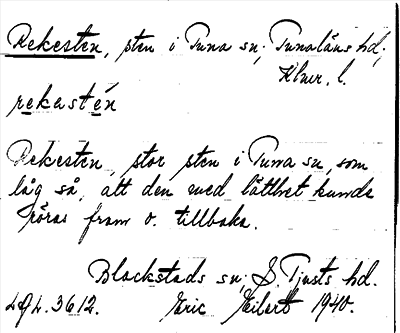 Rekesten, sten i Tuna sn, Tunaläns hd,
Klmr. l.
rekastén
Rekesten, stor sten i Tuna sn, som
låg så, att den med lätthet kunde
röras fram o. tillbaka.
Blackstads sn, S. Tjusts hd.
3612. Eric Eilert 1940.